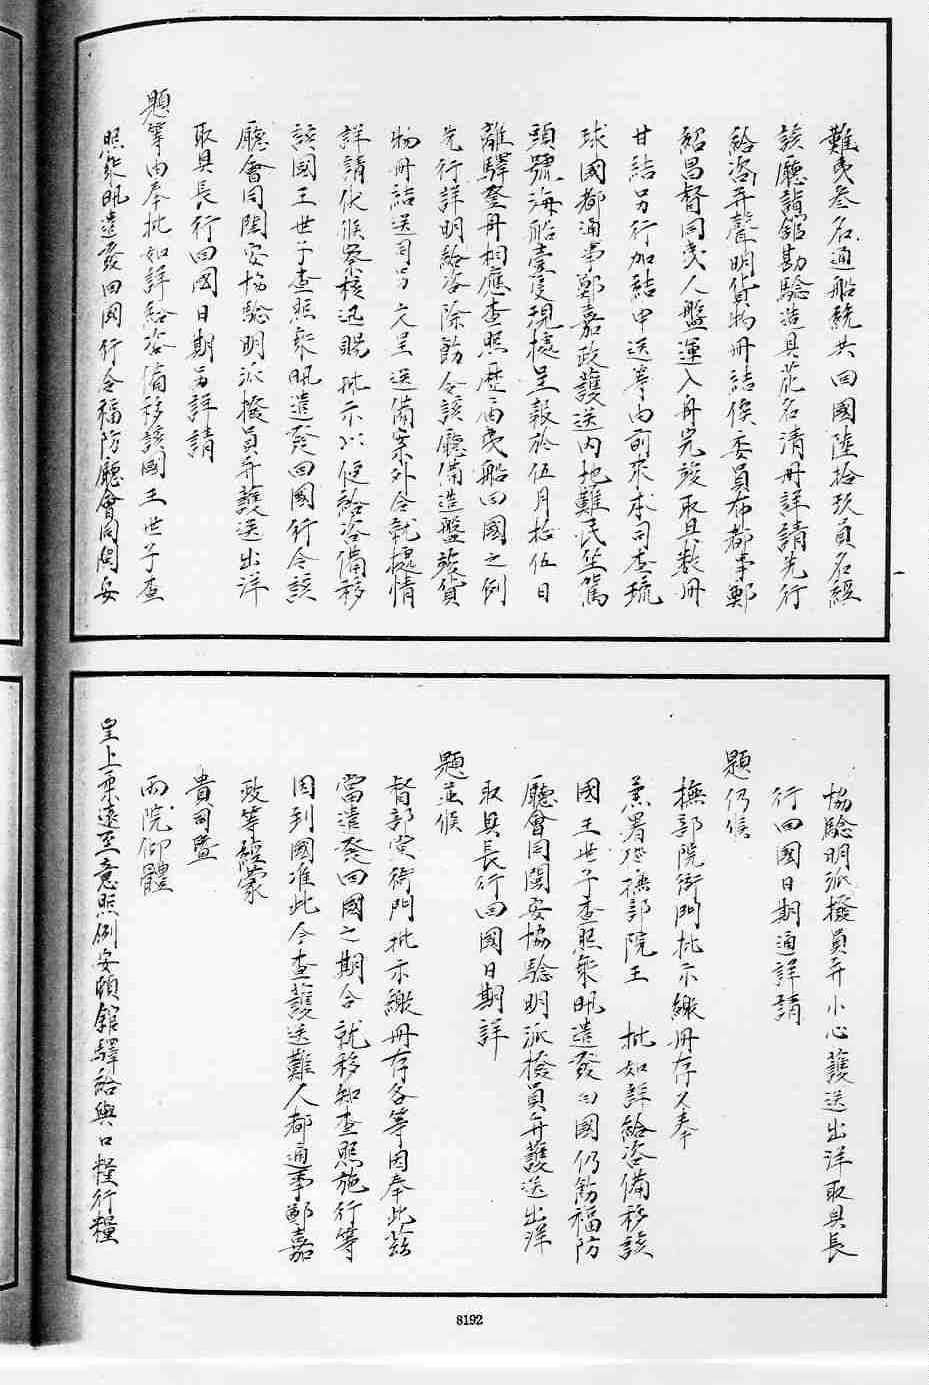 難夷叁名通船統共回國陸拾玖員名經
該廳詣館勘驗造具花名清冊詳請先行
給咨并聲明貨物冊結俟委員布都事鄭
紹昌督同夷人盤運入舟完竣取具數冊
甘結另行加結申送等由前來本司查琉
球國都通事鄭嘉政護送內地難民坐駕
頭號海船壹隻現據呈報於伍月拾伍日
離驛登舟相應查照歷屆夷船回國之例
先行詳明給咨除飭令該廳備造盤竣貨
物冊結送司另文呈送備案外合就據情
詳請伏候察核迅賜批示以便給咨備移
該國王世子查照來帆遣發回國行令該
廳會同閩安協驗明派撥員弁護送出洋
取具長行回國日期另詳請
題等由奉批如詳給咨備移該國王世子查
照來帆遣發回國行令福防廳會同閩安
協驗明派撥員弁小心護送出洋取具長
行回國日期通詳請
題仍候
撫部院衙門批示繳冊存又奉
兼署巡撫部院王 批如詳給咨備移該
國王世子查照來帆遣發回國仍飭福防
廳會同閩安協驗明派撥員弁護送出洋
取具長行回國日期詳
題並候
督部堂衙門批示繳冊存各等因奉此茲
當遣發回國之期合就移知查照施行等
因到國准此今查護送難人都通事鄭嘉
政等經蒙
貴司暨
兩院仰體
皇上柔遠至意照例安頓館驛給與口糧行糧
8192